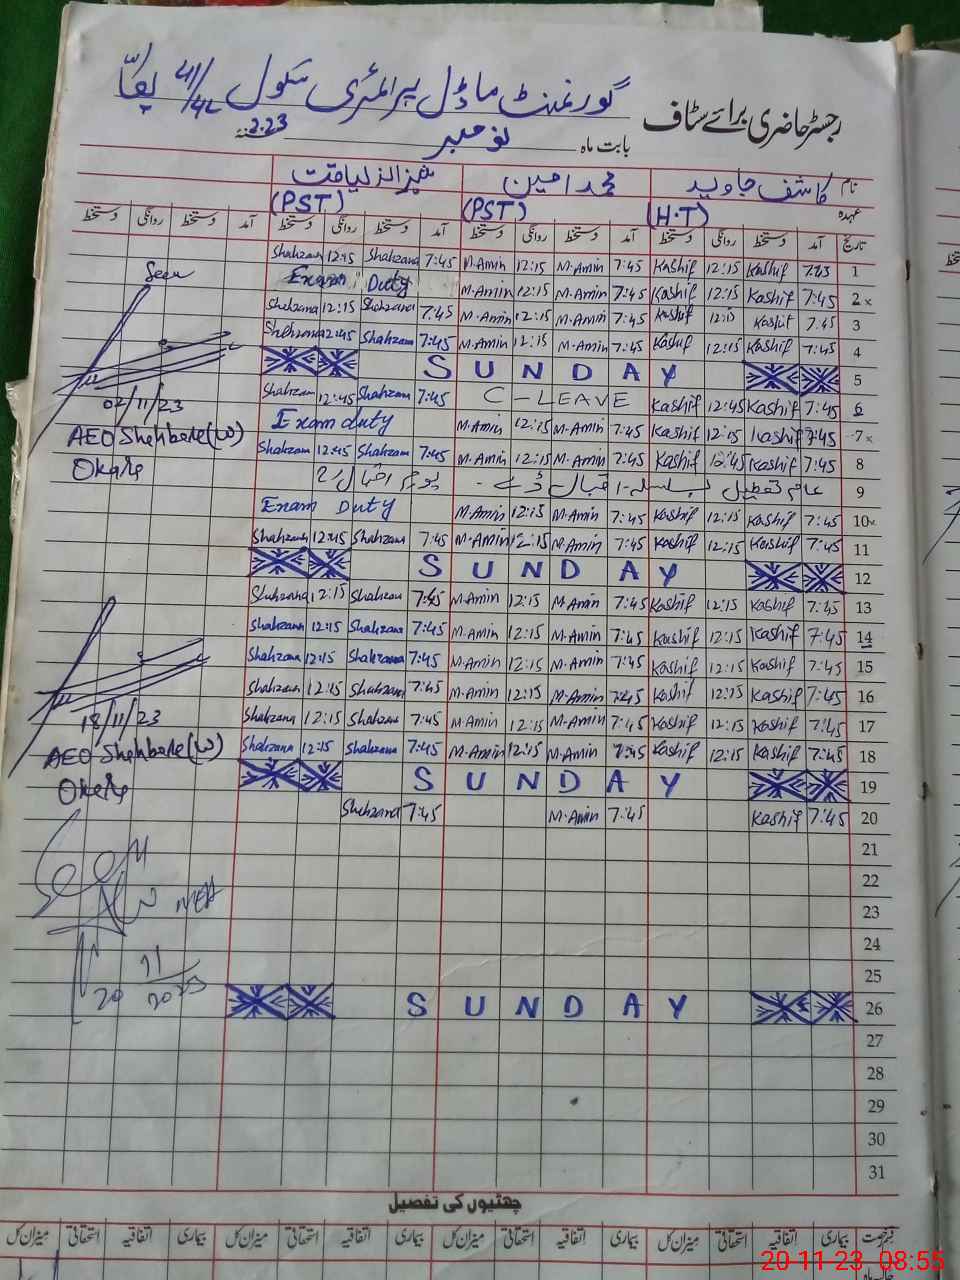 رجسٹر حاضری برائے سٹاف گورنمنٹ ماڈل پرائمری سکول
بابت ماہ نومبر 2023
نام کاشف جاوید محمد امین
عہدہ (H.T) (PST) (PST)
تاریخ آمد دستخط روانگی دستخط آمد دستخط روانگی دستخط آمد دستخط روانگی دستخط آمد دستخط روانگی دستخط
Shahzana 12:15 Shahzana 7:45 M.Amin 12:15 M.Amin 7:45 Kashif 12:15 Kashif 7:45 1
Seen Exam Duty M.Amin 12:15 M.Amin 7:45 Kashif 12:15 Kashif 7:45 2x
Shahzana 12:15 Shahzana 7:45 M.Amin 12:15 M.Amin 7:45 Kashif 12:15 Kashif 7:45 3
Shahzana 12:45 Shahzana 7:45 M.Amin 12:15 M.Amin 7:45 Kashif 12:15 Kashif 7:45 4
SUNDAY 5
02/11/23 Shahzana 12:45 Shahzana 7:45 C-LEAVE Kashif 12:45 Kashif 7:45 6
AEO (W) Exam duty M.Amin 12:15 M.Amin 7:45 Kashif 12:15 Kashif 7:45 7x
Shahzana 12:45 Shahzana 7:45 M.Amin 12:15 M.Amin 7:45 Kashif 12:45 Kashif 7:45 8
عام تعطیل بسلسلہ اقبال ڈے - یوم اقبال 9
Exam Duty M.Amin 12:15 M.Amin 7:45 Kashif 12:15 Kashif 7:45 10x
Shahzana 12:45 Shahzana 7:45 M.Amin 12:15 M.Amin 7:45 Kashif 12:15 Kashif 7:45 11
SUNDAY 12
Shahzana 12:15 Shahzana 7:45 M.Amin 12:15 M.Amin 7:45 Kashif 12:15 Kashif 7:45 13
Shahzana 12:15 Shahzana 7:45 M.Amin 12:15 M.Amin 7:45 Kashif 12:15 Kashif 7:45 14
Shahzana 12:15 Shahzana 7:45 M.Amin 12:15 M.Amin 7:45 Kashif 12:15 Kashif 7:45 15
Shahzana 12:15 Shahzana 7:45 M.Amin 12:15 M.Amin 7:45 Kashif 12:15 Kashif 7:45 16
18/11/23 Shahzana 12:15 Shahzana 7:45 M.Amin 12:15 M.Amin 7:45 Kashif 12:15 Kashif 7:45 17
AEO (W) Shahzana 12:15 Shahzana 7:45 M.Amin 12:15 M.Amin 7:45 Kashif 12:15 Kashif 7:45 18
SUNDAY 19
Shahzana 7:45 M.Amin 7:45 Kashif 7:45 20
21
22
23
24
25
20 11 2023 SUNDAY 26
27
28
29
30
31
چھٹیوں کی تفصیل
بیماری اتفاقیہ استحقاقی میزان کل بیماری اتفاقیہ استحقاقی میزان کل بیماری اتفاقیہ استحقاقی میزان کل بیماری اتفاقیہ استحقاقی میزان کل
20-11-23 08:55